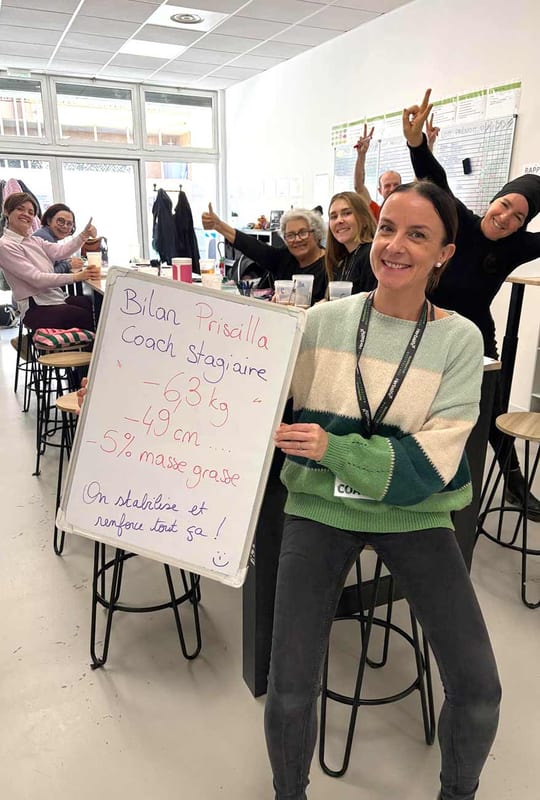 Bilan Priscilla
Coach stagiaire
" - 6,3 kg "
- 49 cm ....
- 5% masse grasse
On stabilise et
renforce tout ça !
COA
RAPP